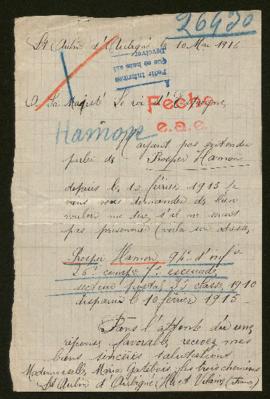 26430
St Aubin d'Aubigné, le 10 Mai 1916
A Sa Majesté Le roi d'Espagne,
Feche
e.a.e.
Hamon
N'ayant pas entendu
parler de Prosper Hamon
depuis le 10 février 1915 je
vous demander de bien
vouloir me dire, s'il ne serait
pas prisonnier (voila son adresse,
Prosper Hamon, 9
26e compie 7e escouade,
secteur postal classe 1910
disparu le 10 février 1915 -
Dans l'attente d'une
réponse favorable recevez mes
bien sincères salutations
Mademoiselle Maria les trois cheminées
St Aubin d'Aubigné, Ille et Vilaine, (France)